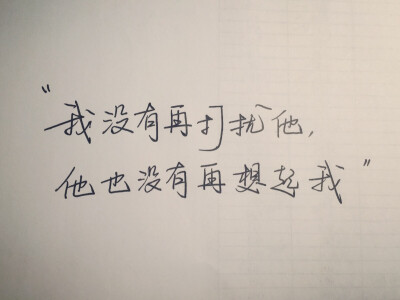 “我没有再打扰他,
他也没有再想起我”